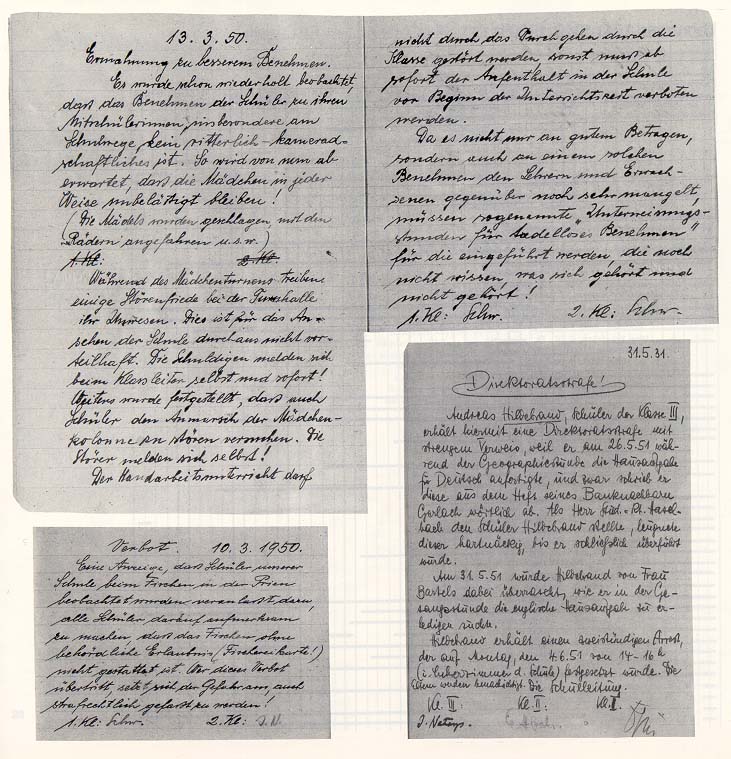 13. 3. 50.
Ermahnung zu besserem Benehmen.
Es wurde schon wiederholt beobachtet,
dass das Benehmen der Schüler zu ihren
Mitschülerinnen, insbesondere am
Schulwege, kein ritterlich-kamerad-
schaftliches ist. So wird von nun ab
erwartet, dass die Mädchen in jeder
Weise unbelästigt bleiben!
(Die Mädels wurden geschlagen, mit den
Rädern angefahren u.s.w.)
1. Kl: 2. Kl:
Während des Mädchenturnens treiben
einige Störenfriede bei der Turnhalle
ihr Unwesen. Dies ist für das An-
sehen der Schule durchaus nicht vor-
teilhaft. Die Schuldigen melden sich
beim Klassleiter selbst und sofort!
Weiters wurde festgestellt, dass auch
Schüler den Anmarsch der Mädchen-
kolonne zu stören versuchen. Die
Störer melden sich selbst!
Der Handarbeitsunterricht darf
nicht durch das Durchgehen durch die
Klasse gestört werden, sonst muss ab
sofort der Aufenthalt in der Schule
vor Beginn der Unterrichtszeit verboten
werden.
Da es nicht nur an gutem Betragen,
sondern auch an einem solchen
Benehmen den Lehrern und Erwach-
senen gegenüber noch sehr mangelt,
müssen sogenannte „Unterweisungs-
stunden für tadelloses Benehmen"
für die eingeführt werden, die noch
nicht wissen was sich gehört und
nicht gehört!
1. Kl: Schw. 2. Kl: Schw.
Verbot. 10. 3. 1950.
Eine Anzeige, dass Schüler unserer
Schule beim Fischen in der Prien
beobachtet wurden veranlasst dazu,
alle Schüler darauf aufmerksam
zu machen, dass das Fischen ohne
behördliche Erlaubnis (Fischereikarte!)
nicht gestattet ist. Wer dieses Verbot
übertritt, setzt sich der Gefahr aus, auch
strafrechtlich gefasst zu werden!
1. Kl: Schw. 2. Kl: J. N.
31.5.51.
Direktoratsstrafe!
Andreas Hildebrand, Schüler der Klasse III,
erhält hiermit eine Direktoratsstrafe mit
strengem Verweis, weil er am 26.5.51 wäh-
rend der Geographiestunde die Hausaufgabe
für Deutsch anfertigte, und zwar schrieb er
diese aus dem Heft seines Banknachbarn
Gerlach wörtlich ab. Als Herr Stud.-Rt. Hasel-
bach den Schüler Hildebrand stellte, leugnete
dieser hartnäckig, bis er schliesslich überführt
wurde.
Am 31.5.51 wurde Hildebrand von Frau
Bartels dabei überrascht, wie er in der Ge-
sangsstunde die englische Hausaufgabe zu er-
ledigen suchte.
Hildebrand erhält einen zweistündigen Arrest,
der auf Montag, den 4.6.51 von 14-16 h
(i. Lehrerzimmer d. Schule) festgesetzt wurde. Die
Eltern werden benachrichtigt. Die Schulleitung.
Kl. III: Kl. II: Kl. I: